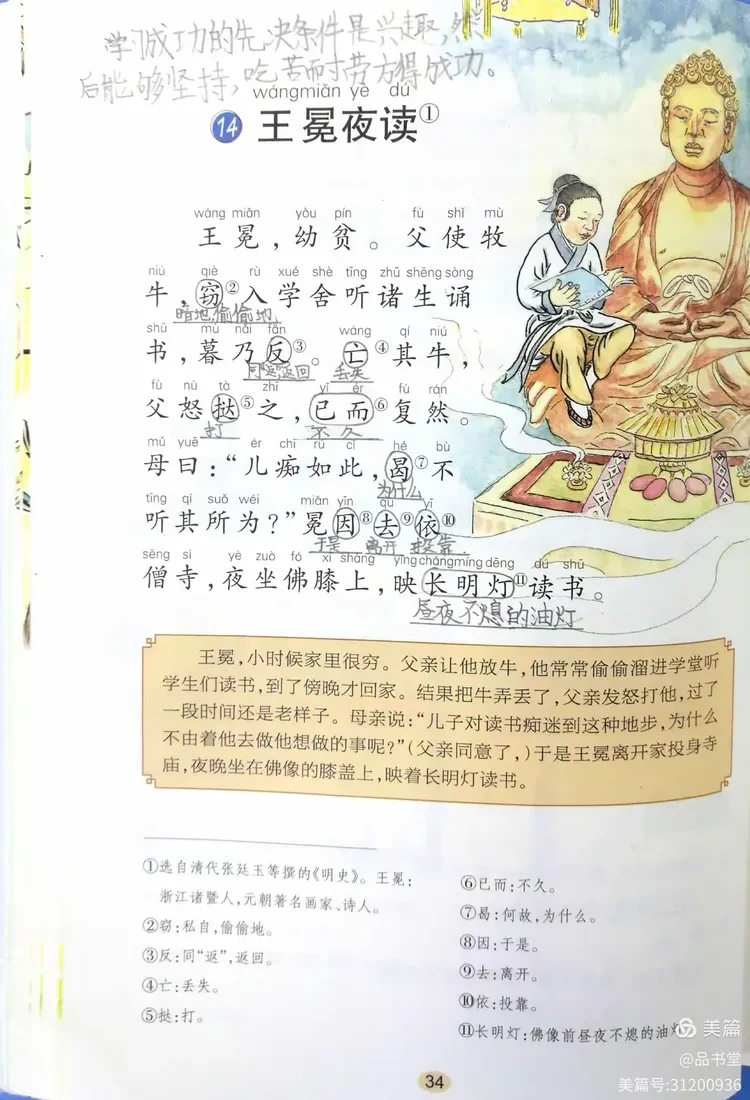 学习成功的先决条件是兴趣,然
后能够坚持,吃苦而耐劳方得成功。
wángmiǎn yè dú
14 王冕夜读①
wáng miǎn yòu pín fù shǐ mù
王冕,幼贫。父使牧
niú qiè rù xué shè tīng zhū shēng sòng
牛,窃②入学舍听诸生诵
暗地,偷偷地
shū mù nǎi fǎn wáng qí niú
书,暮乃反③。亡④其牛,
同"返"返回 丢失
fù nù tà zhī yǐ ér fù rán
父怒挞⑤之,已而⑥复然。
打 不久
mǔ yuē ér chī rú cǐ hé bù
母曰:“儿痴如此,曷⑦不
为什么
tīng qí suǒ wéi miǎn yīn qù yī
听其所为?”冕因⑧去⑨依⑩
于是 离开 投靠
sēng sì yè zuò fó xī shàng yìng cháng míng dēng dú shū
僧寺,夜坐佛膝上,映长明灯⑪读书。
昼夜不熄的油灯
王冕,小时候家里很穷。父亲让他放牛,他常常偷偷溜进学堂听
学生们读书,到了傍晚才回家。结果把牛弄丢了,父亲发怒打他,过了
一段时间还是老样子。母亲说:“儿子对读书痴迷到这种地步,为什么
不由着他去做他想做的事呢?”(父亲同意了,)于是王冕离开家投身寺
庙,夜晚坐在佛像的膝盖上,映着长明灯读书。
①选自清代张廷玉等撰的《明史》。王冕:
浙江诸暨人,元朝著名画家、诗人。
②窃:私自,偷偷地。
③反:同“返”,返回。
④亡:丢失。
⑤挞:打。
⑥已而:不久。
⑦曷:何故,为什么。
⑧因:于是。
⑨去:离开。
⑩依:投靠。
⑪长明灯:佛像前昼夜不熄的油灯
34
美篇
@品书堂
美篇号:31200936